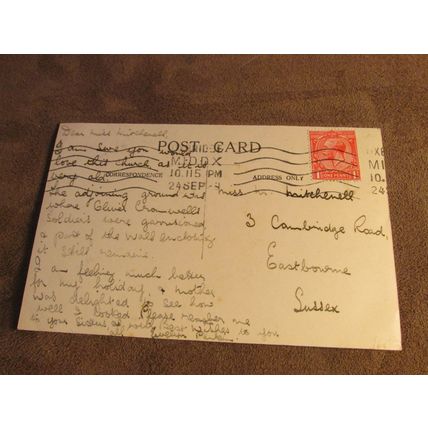 Dear Miss Mitchenell,
I am sure you would
love this church as it is
very old.
The adjoining ground was
where Oliver Cromwell's
Soldiers were garrisoned
a part of the wall enclosing
it still remains.
I am feeling much better
for my holiday, & mother
was delighted to see how
well I looked Please remember me
to your Sisters, with best wishes to you
all
POST CARD
CORRESPONDENCE
ADDRESS ONLY
MIDDX
10.15 PM
24 SEP
ONE PENNY
MIDD
24
Miss Mitchenell
3 Cambridge Road,
Eastbourne
Sussex